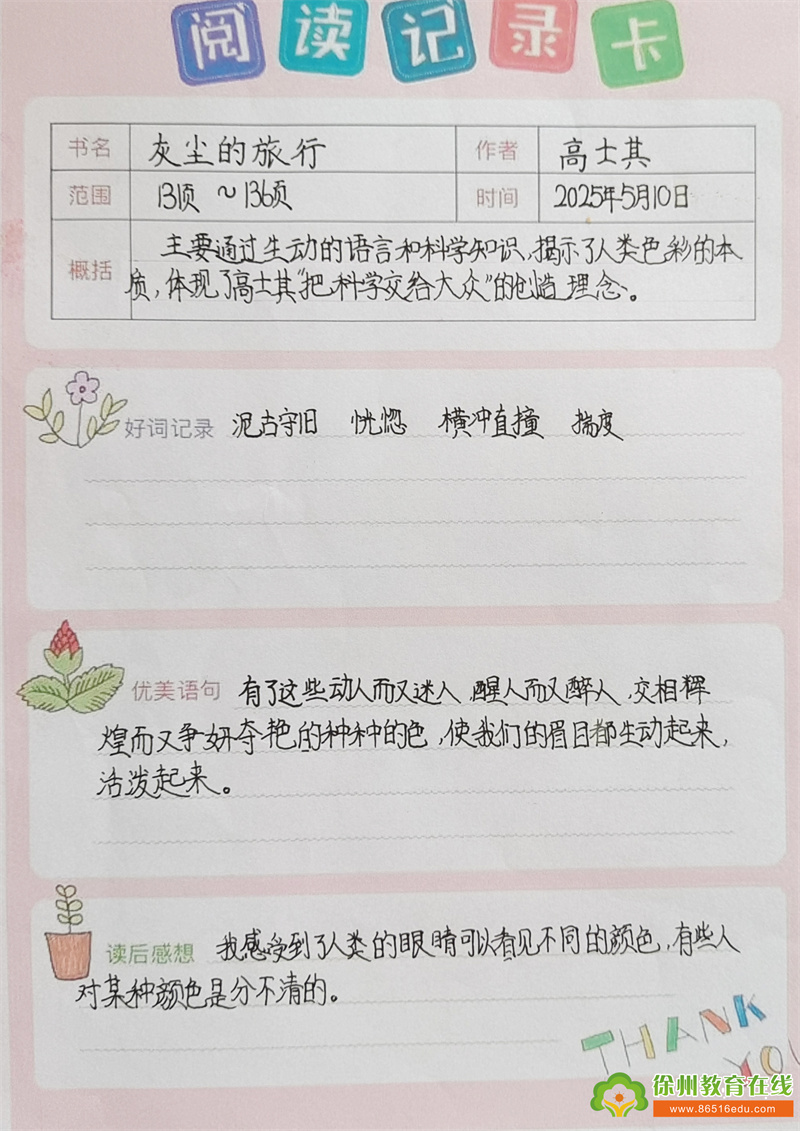 阅读记录卡
书名 灰尘的旅行 作者 高士其
范围 131页～136页 时间 2025年5月10日
概括 主要通过生动的语言和科学知识,揭示了人类色彩的本
质,体现了高士其“把科学交给大众”的创造理念。
好词记录 泥古守旧 恍惚 横冲直撞 揣度
优美语句 有了这些动人而又迷人,醒人而又醉人,交相辉
煌而又争妍夺艳的种种的色,使我们的眉目都生动起来,
活泼起来。
读后感想 我感受到了人类的眼睛可以看见不同的颜色,有些人
对某种颜色是分不清的。
THANK
YOU
徐州教育在线
www.86516edu.com